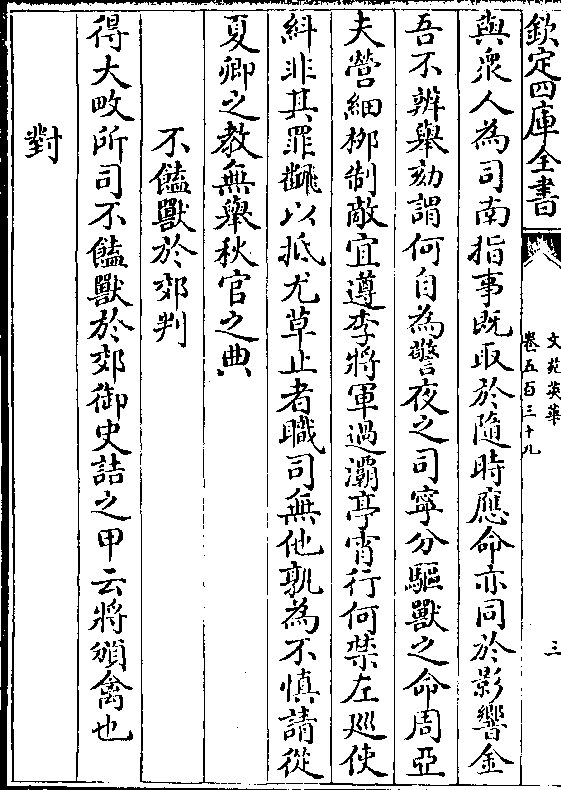 欽定四庫全書
文苑英華
卷五百三十九
三
與衆人為司南指事既取於隨時應命亦同於影響金
吾不辨舉劾謂何自為警夜之司寧分驅獸之命周亞
夫營細柳制敵宜遵李將軍過灞亭宵行何禁左巡使
糾非其罪輒以抵尤草止者職司無他孰為不慎請從
夏卿之教無舉秋官之典
不饁獸於郊判
得大畋所司不饁獸於郊御史詰之甲云將頒禽也
對